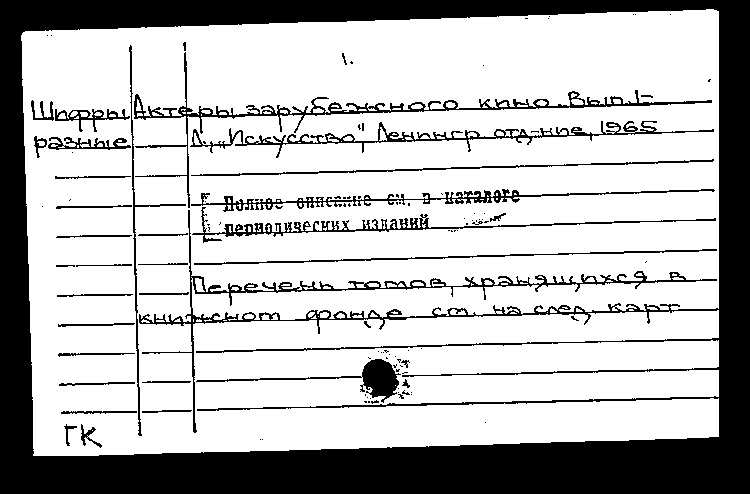 1.
Шифры Актеры зарубежного кино. Вып. 1-
разные Л., „Искусство", Ленингр. отд-ние, 1965
Полное описание см. в каталоге
периодических изданий
Перечень томов, хранящихся в
книжном фонде см. на след. карт
ГК